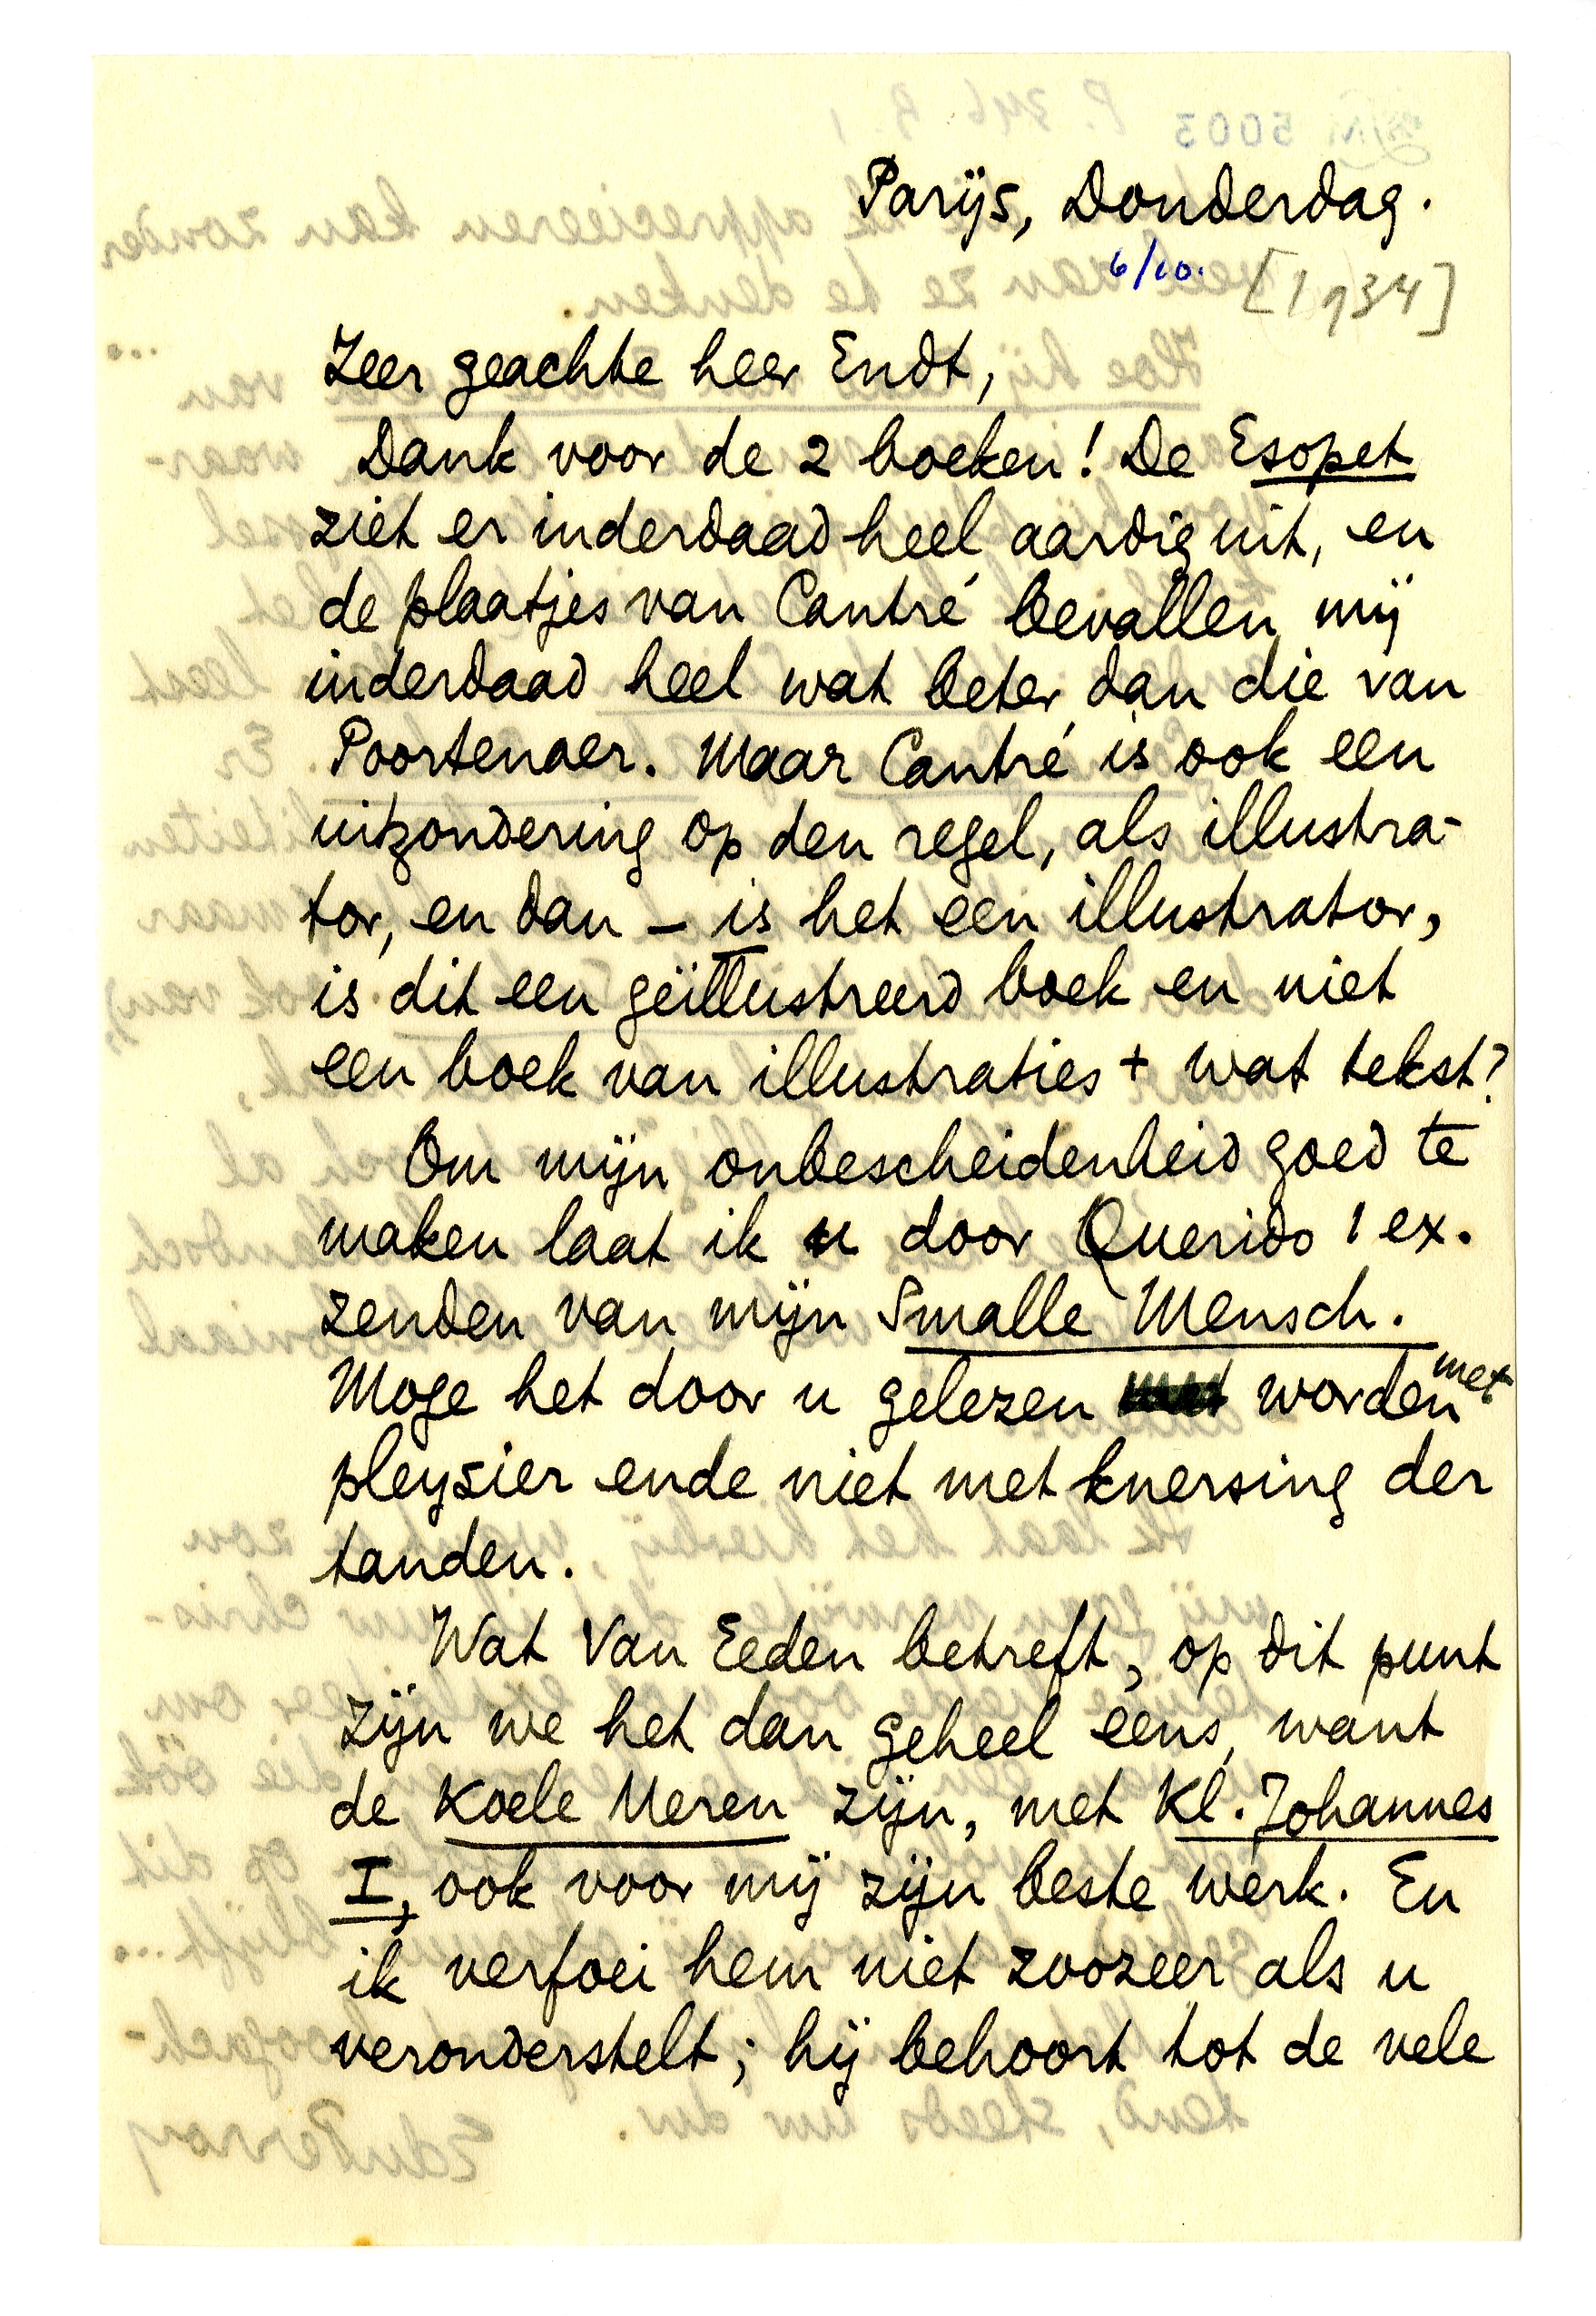 Parijs, Donderdag.
6/10. [1934]
Zeer geachte heer Endt,
Dank voor de 2 boeken! De Esopet
ziet er inderdaad heel aardig uit, en
de plaatjes van Cantré bevallen mij
inderdaad heel wat beter dan die van
Poortenaer. Maar Cantré is ook een
uitzondering op den regel, als illustra-
tor, en dan – is het een illustrator,
is dit een geïllustreerd boek en niet
een boek van illustraties + wat tekst?
Om mijn onbescheidenheid goed te
maken laat ik u door Querido 1 ex.
zenden van mijn Smalle Mensch.
Moge het door u gelezen worden met
pleysier ende niet met knersing der
tanden.
Wat Van Eeden betreft, op dit punt
zijn we het dan geheel eens, want
de Koele Meren zijn, met Kl. Johannes
I, ook voor mij zijn beste werk. En
ik verfoei hem niet zoozeer als u
veronderstelt; hij behoort tot de vele